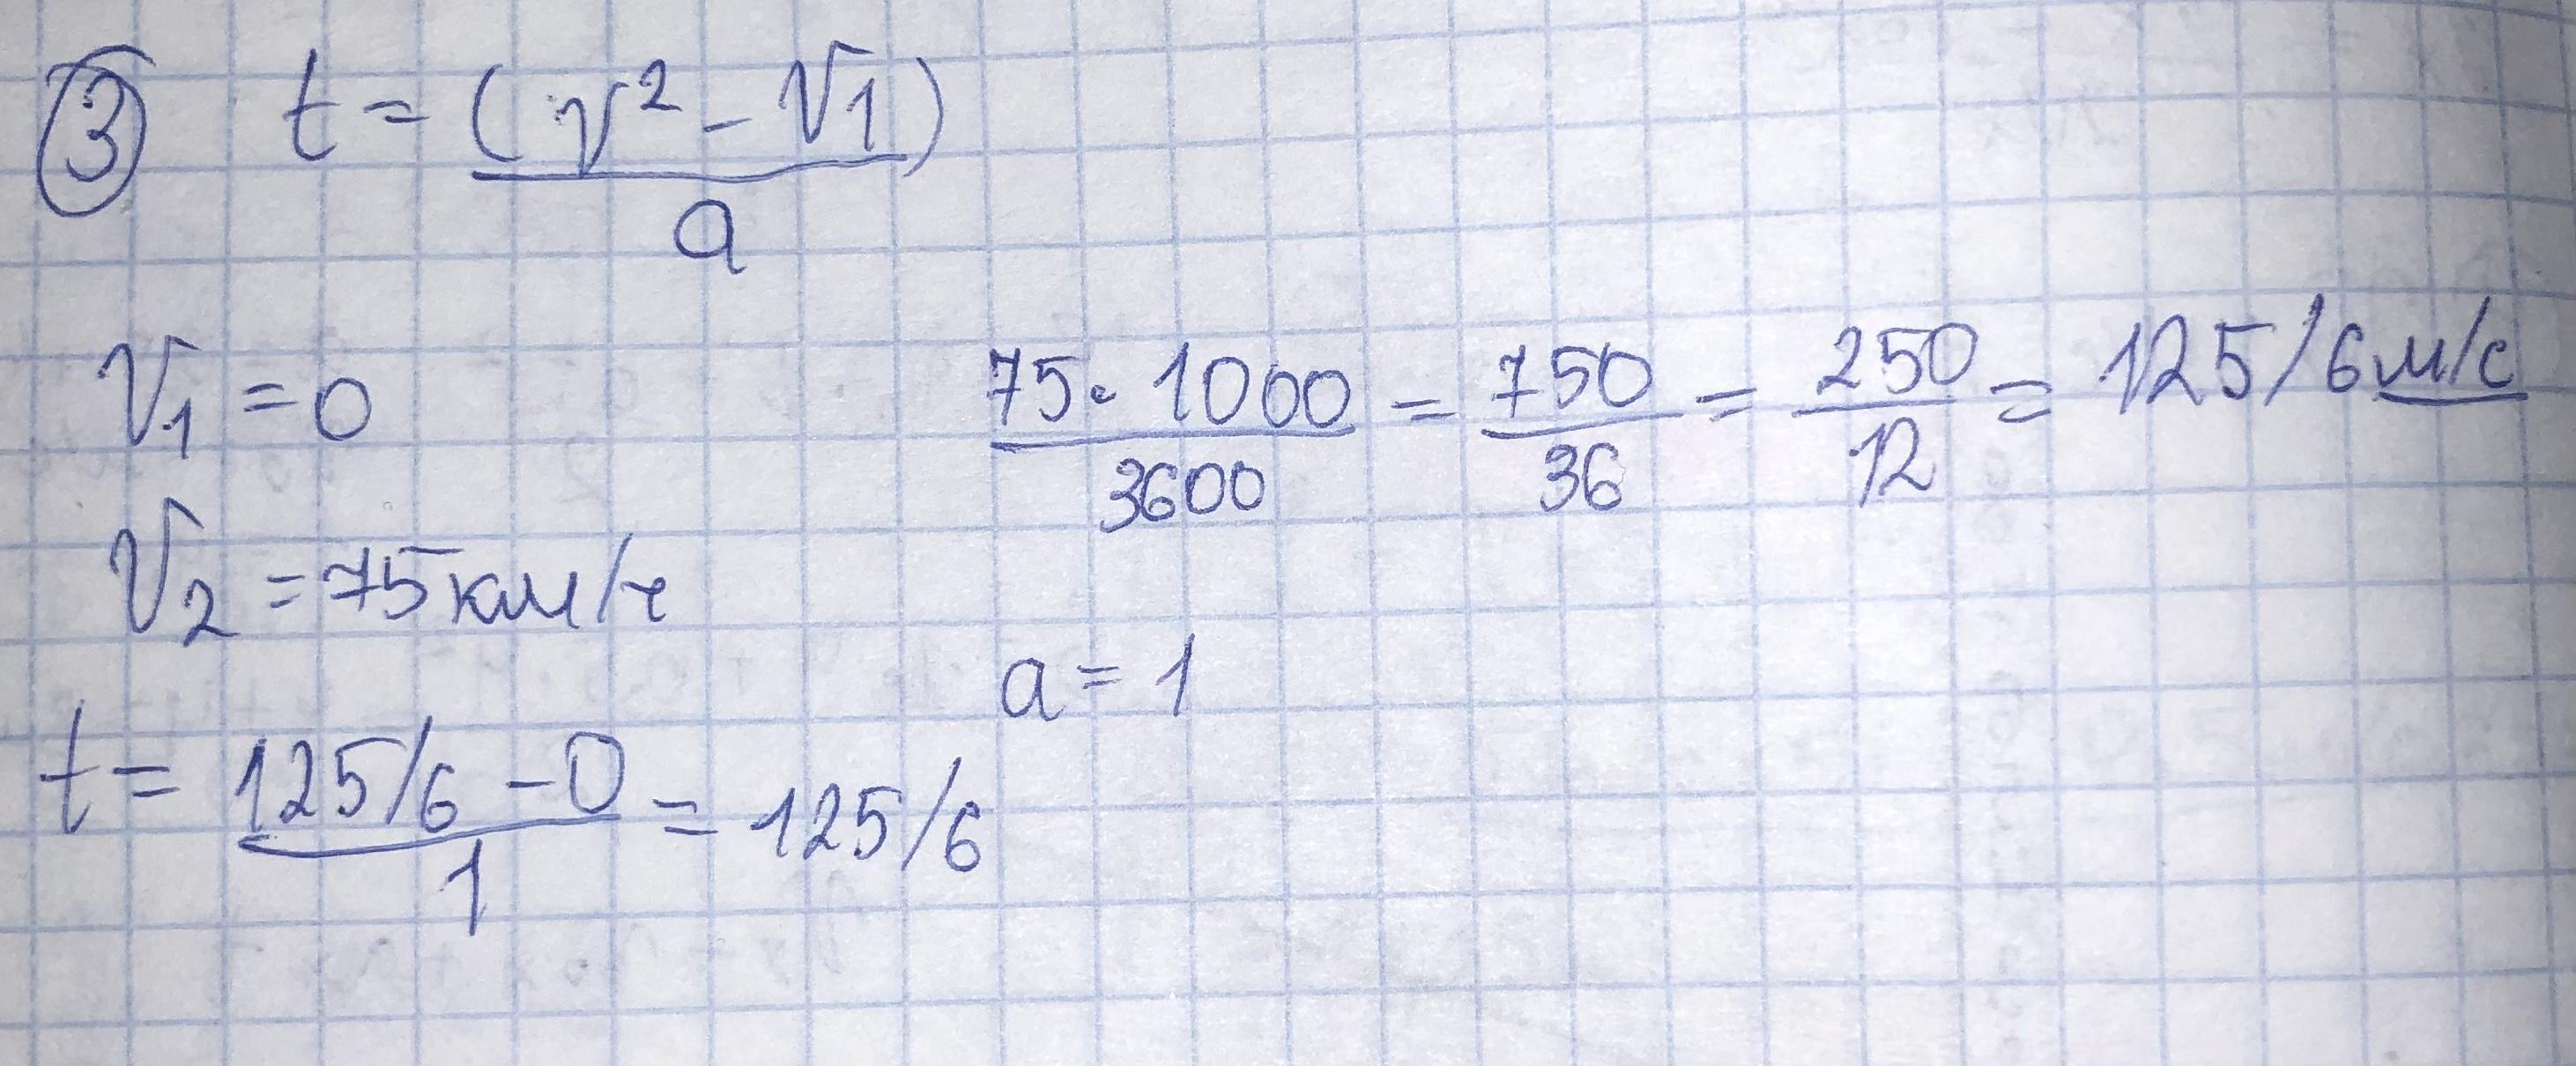 ③ t = (v² - V1)
a
V1 = 0
75 · 1000 / 3600 = 750 / 36 = 250 / 12 = 125/6 м/с
V2 = 75 км/ч
a = 1
t = 125/6 - 0 / 1 = 125/6